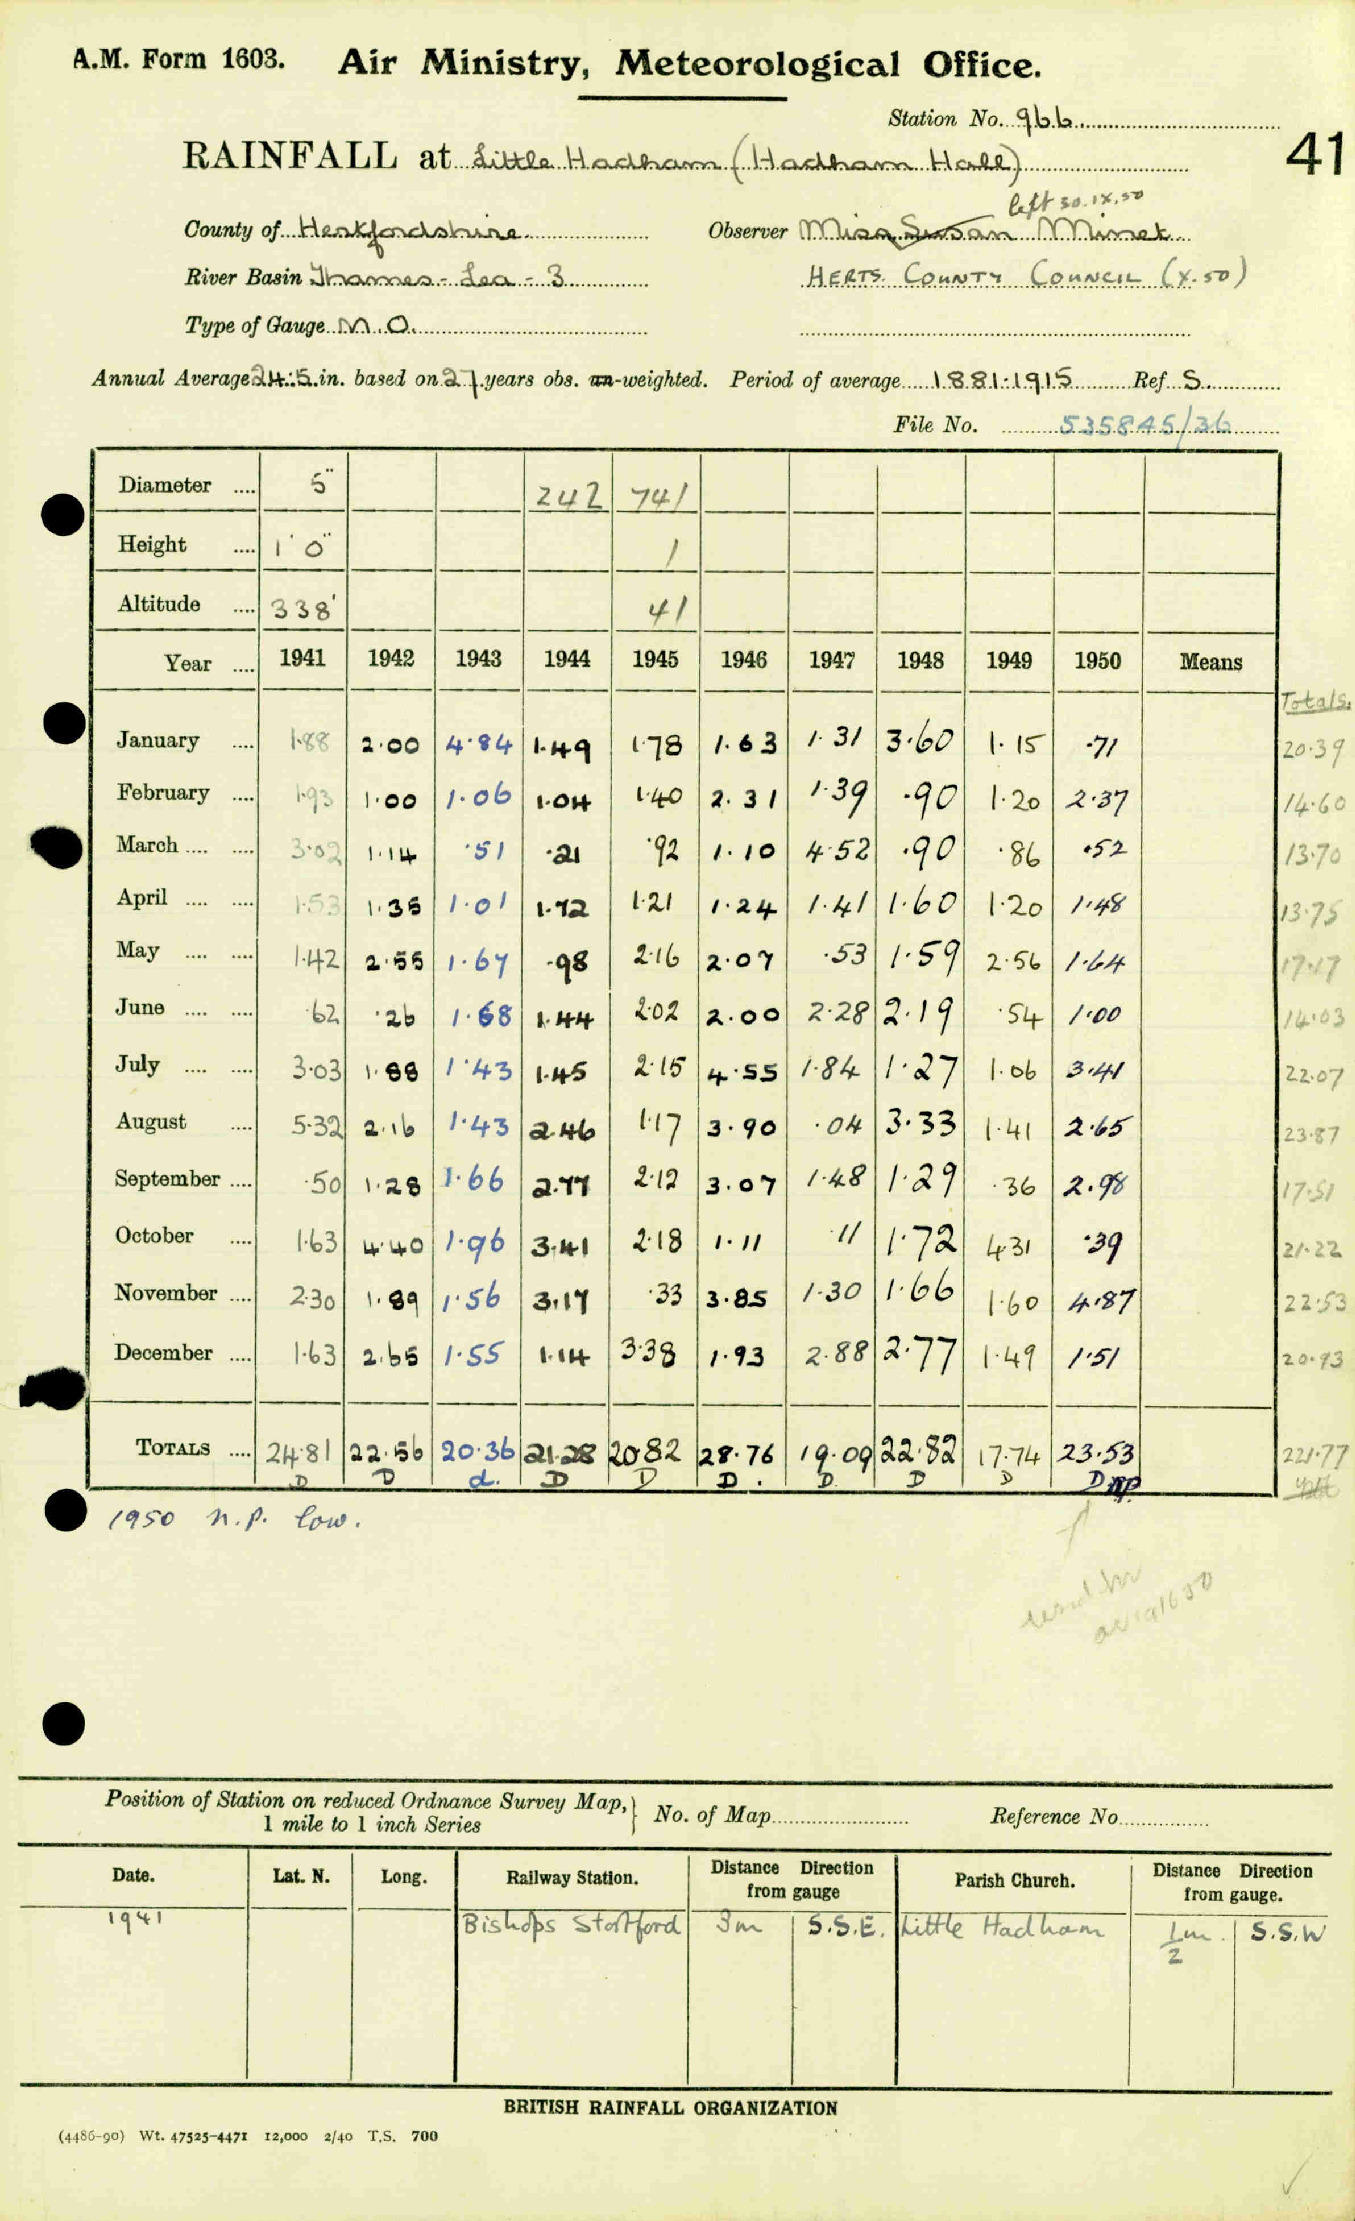 A.M. Form 1603. Air Ministry, Meteorological Office.
Station No. 966
RAINFALL at Little Hadham (Hadham Hall) 41
left 30.IX.50
County of Hertfordshire Observer Miss Susan Minet
River Basin Thames - Lea - 3 HERTS. COUNTY COUNCIL (X.50)
Type of Gauge M.O.
Annual Average 24.5 in. based on 27 years obs. un-weighted. Period of average 1881-1915 Ref. S.
File No. 535845/36
Diameter .... 5" 242 741
Height .... 1' 0" 1
Altitude .... 338' 41
Year .... 1941 1942 1943 1944 1945 1946 1947 1948 1949 1950 Means
Totals.
January .... 1.88 2.00 4.84 1.49 1.78 1.63 1.31 3.60 1.15 .71 20.39
February .... 1.93 1.00 1.06 1.04 1.40 2.31 1.39 .90 1.20 2.37 14.60
March .... .... 3.02 1.14 .51 .21 .92 1.10 4.52 .90 .86 .52 13.70
April .... .... 1.53 1.35 1.01 1.72 1.21 1.24 1.41 1.60 1.20 1.48 13.75
May .... .... 1.42 2.55 1.67 .98 2.16 2.07 .53 1.59 2.56 1.64 17.17
June .... .... .62 .26 1.68 1.44 2.02 2.00 2.28 2.19 .54 1.00 14.03
July .... .... 3.03 1.88 1.43 1.45 2.15 4.55 1.84 1.27 1.06 3.41 22.07
August .... 5.32 2.16 1.43 2.46 1.17 3.90 .04 3.33 1.41 2.65 23.87
September .... .50 1.28 1.66 2.77 2.12 3.07 1.48 1.29 .36 2.98 17.51
October .... 1.63 4.40 1.96 3.41 2.18 1.11 .11 1.72 4.31 .39 21.22
November .... 2.30 1.89 1.56 3.17 .33 3.85 1.30 1.66 1.60 4.87 22.53
December .... 1.63 2.65 1.55 1.14 3.38 1.93 2.88 2.77 1.49 1.51 20.93
TOTALS .... 24.81 22.56 20.36 21.28 20.82 28.76 19.09 22.82 17.74 23.53 221.77
D D d. D D D. D D D D np.
1950 n.p. low.
Position of Station on reduced Ordnance Survey Map, 1 mile to 1 inch Series } No. of Map Reference No.
Date. Lat. N. Long. Railway Station. Distance Direction from gauge Parish Church. Distance Direction from gauge.
1941 Bishops Stortford 3m S.S.E. Little Hadham 1/2 m. S.S.W
BRITISH RAINFALL ORGANIZATION
(4486-90) Wt. 47525-4471 12,000 2/40 T.S. 700